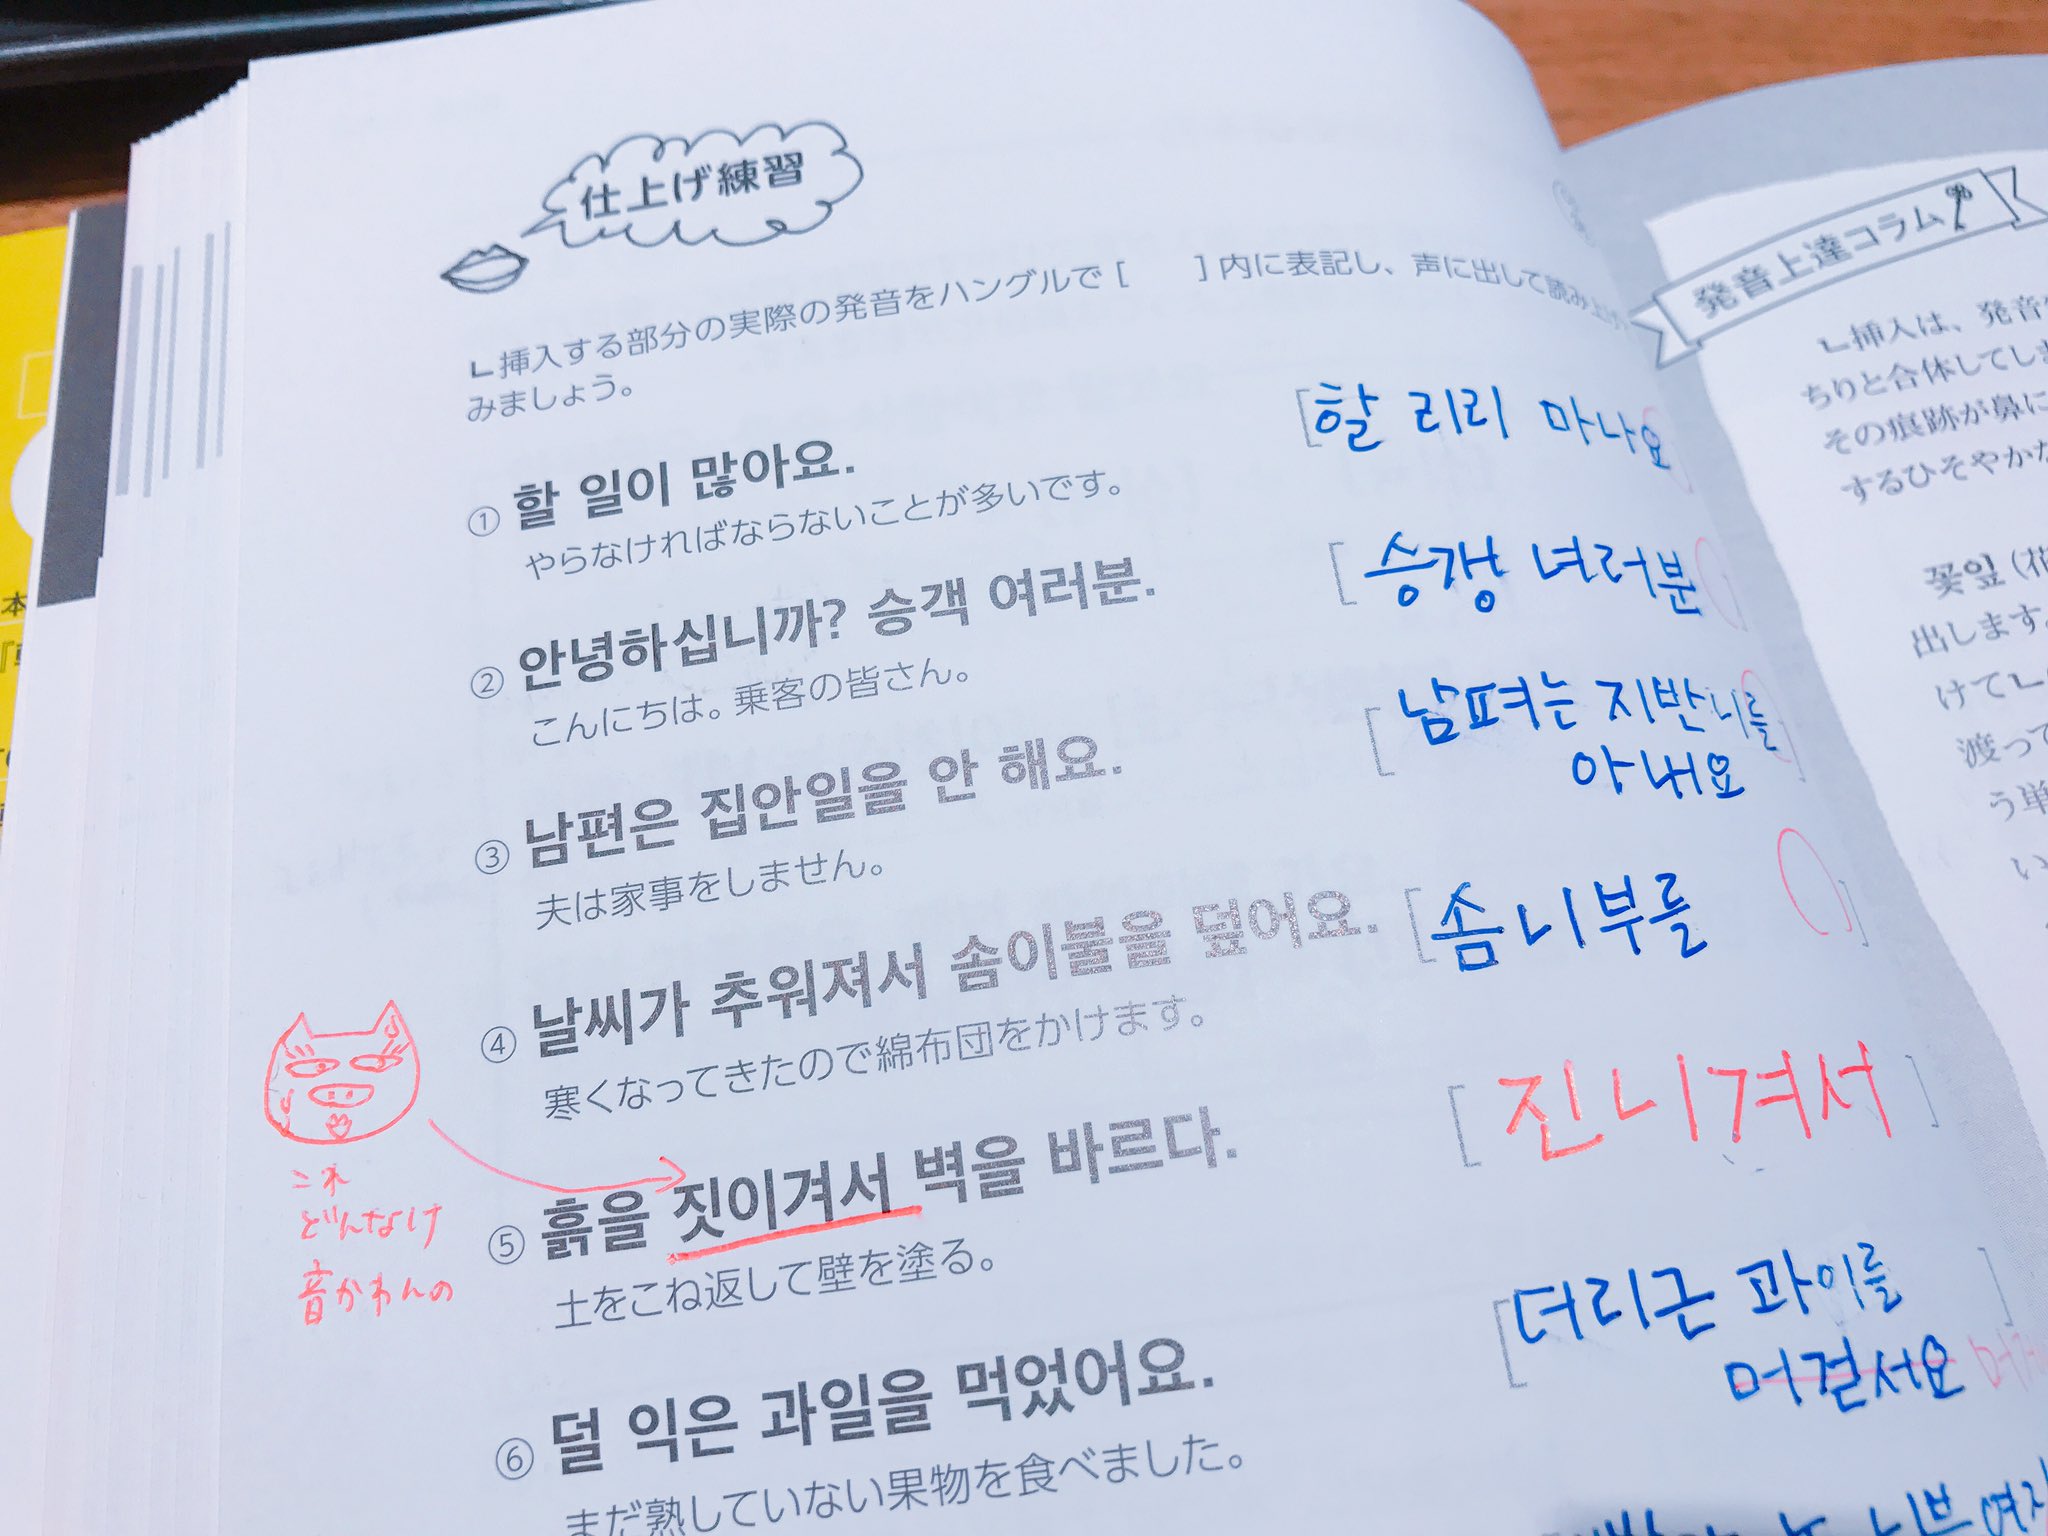 仕上げ練習
ㄴ挿入する部分の実際の発音をハングルで [　　] 内に表記し、声に出して読み上げ
みましょう。
① 할 일이 많아요.
やらなければならないことが多いです。
[할 리리 마나요
② 안녕하십니까? 승객 여러분.
こんにちは。乗客の皆さん。
[ 승갱 녀러분
③ 남편은 집안일을 안 해요.
夫は家事をしません。
[ 남펴는 지반니를
아내요 ]
④ 날씨가 추워져서 솜이불을 덮어요.
寒くなってきたので綿布団をかけます。
[솜니부를 ]
これ
どんなけ
音かわんの
⑤ 흙을 짓이겨서 벽을 바르다.
土をこね返して壁を塗る。
[ 진니겨서 ]
⑥ 덜 익은 과일을 먹었어요.
まだ熟していない果物を食べました。
[더리근 과이를 ]
머겼서요
発音上達コラム
ㄴ挿入は、発音
ちりと合体してしま
その痕跡が鼻に
するひそやかな
꽃잎 (花
出します。
けてㄴ
渡って
う単
い